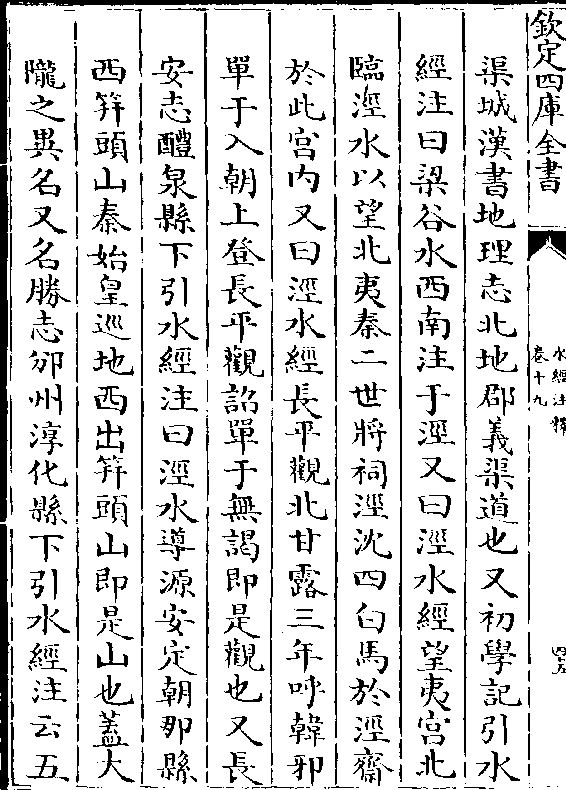 欽定四庫全書
水經注釋
卷十九
四五
渠城漢書地理志北地郡義渠道也又初學記引水
經注曰梁谷水西南注于涇又曰涇水經望夷宫北
臨涇水以望北夷秦二世將祠涇沈四白馬於涇齋
於此宫内又曰涇水經長平觀北甘露三年呼韓邪
單于入朝上登長平觀詔單于無謁即是觀也又長
安志醴泉縣下引水經注曰涇水導源安定朝那縣
西笄頭山秦始皇巡地西出笄頭山即是山也蓋大
隴之異名又名勝志邠州淳化縣下引水經注云五